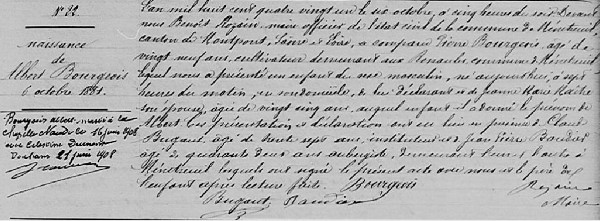 N° 82.
naissance
de
Albert Bourgeois
6 octobre 1881.
Bourgeois Albert, marié à la
Chapelle Naude le 16 juin 1908
avec Célestine
21 juin 1908
L'an mil huit cent quatre vingt un le six octobre, à cinq heures du soir Devant
nous Benoît Rozain, maire officier de l'état civil de la commune de Ménetreuil
canton de Montpont, Saône et Loire, a comparu Pierre Bourgeois, agé de
vingt neuf ans, cultivateur demeurant aux commune de Ménetreuil
lequel nous a présenté un enfant du sexe masculin, né aujourd'hui, à sept
heures du matin, en son domicile, de lui déclarant et de Jeanne Marie
son épouse, agée de vingt cinq ans, auquel enfant il a donné le prénom de
Albert Ces présentation et déclaration ont eu lieu en présence de Claude
Bugaut, agé de trente sept ans, instituteur et de Jean Pierre Baudier
agé de quarante deux ans aubergiste, demeurant tous à
Ménetreuil lesquels ont signé le présent acte avec nous et le père de
l'enfant après lecture faite. Bourgeois
Bugaut Baudier Rozain
Maire